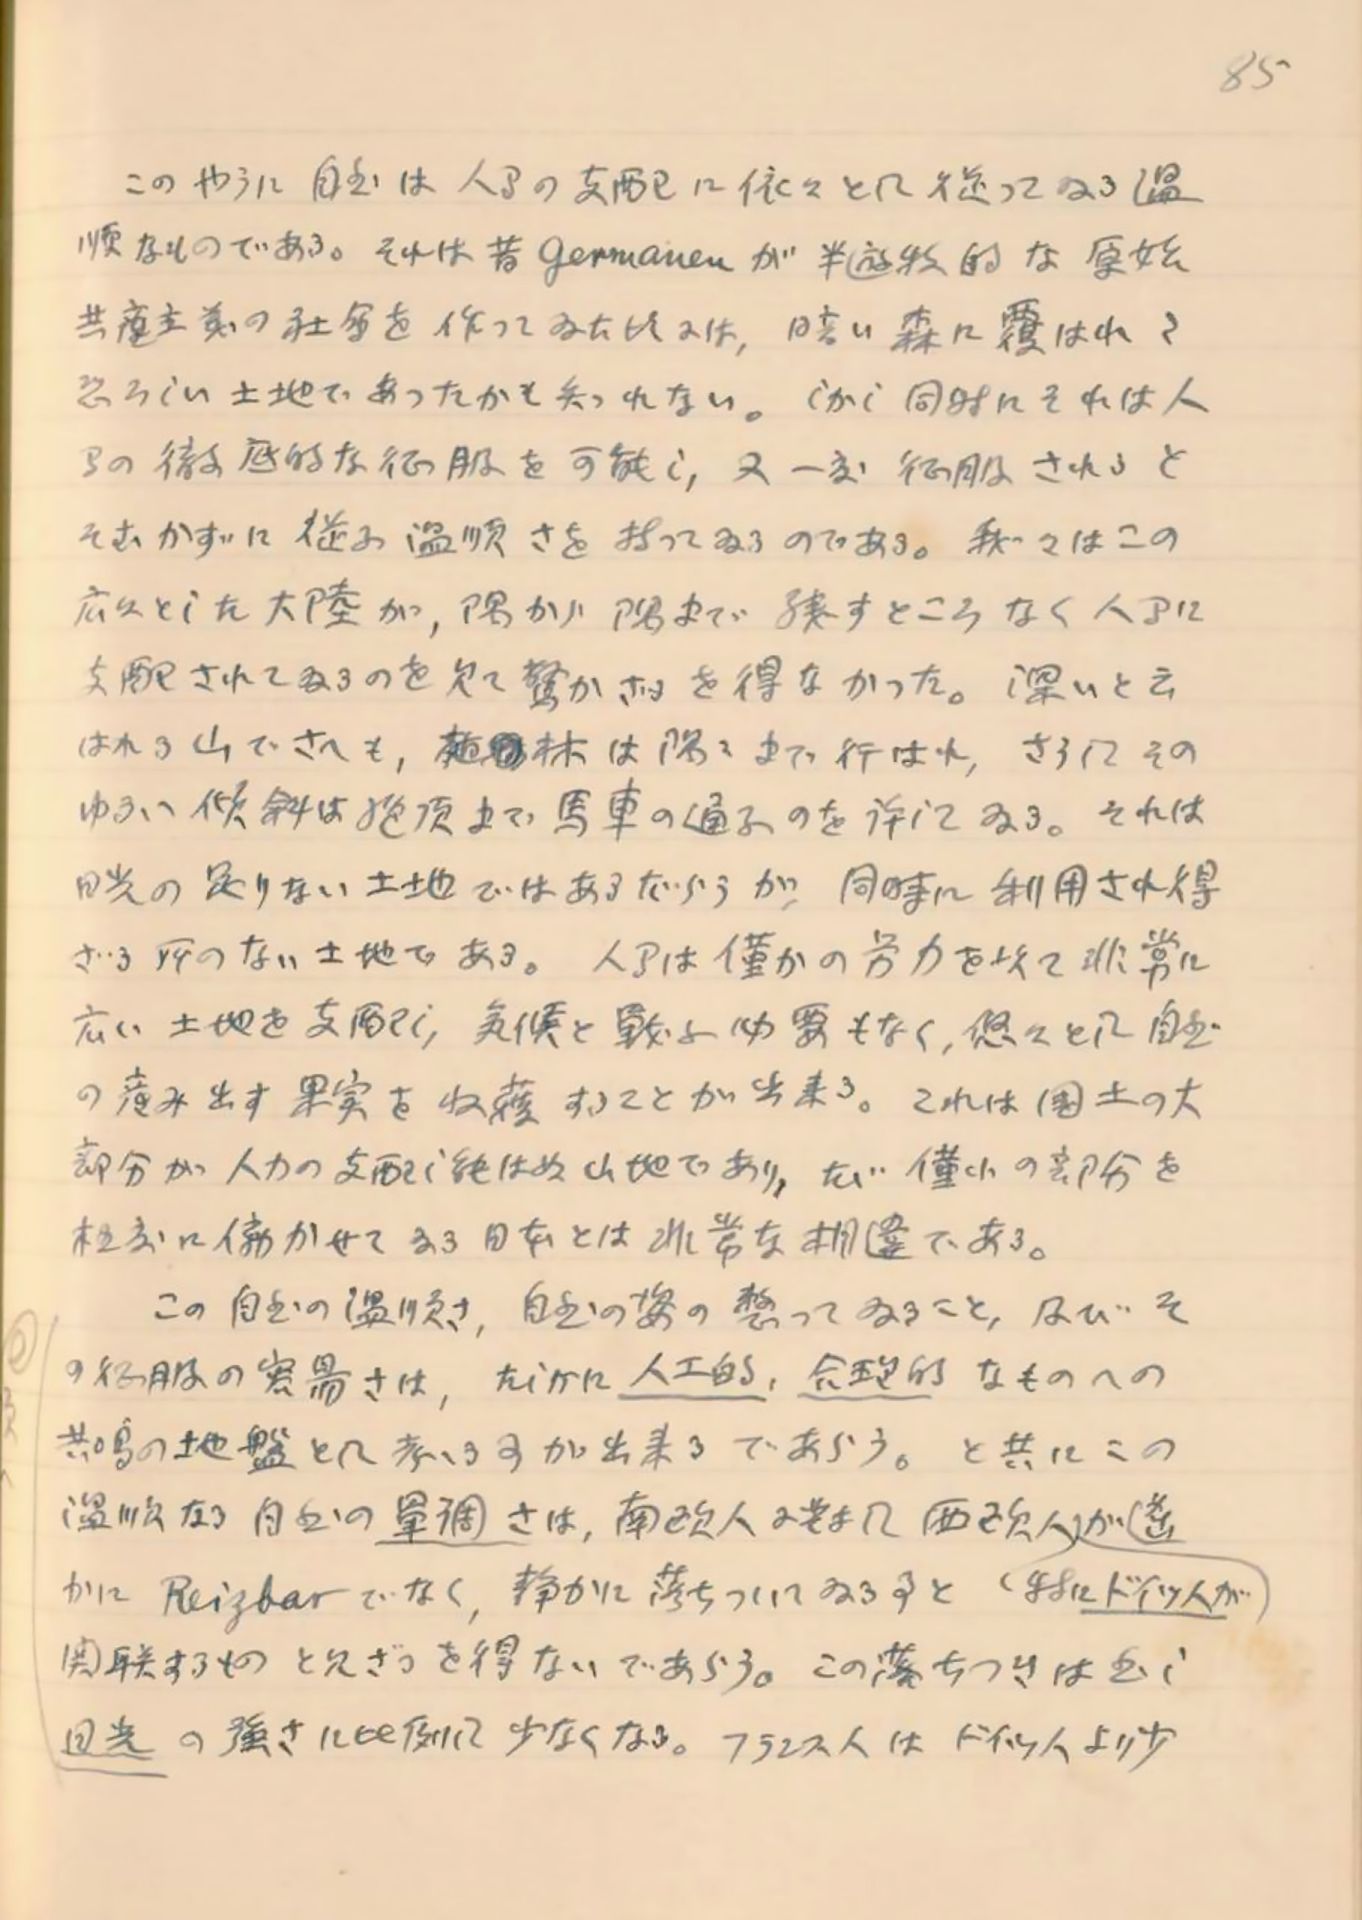 85
このやうに自然は人間の支配に依々として従ってゐる温
順なものである。それは昔Germanenが半遊牧的な原始
共産主義の社会を作ってゐた比には, 暗い森に覆はれて
恐ろしい土地であったかも知れない。しかし同時にそれは人
間の徹底的な征服を可能し, 又一度征服されると
そむかずに従ふ温順さを持ってゐるのである。我々はこの
広々とした大陸が, 隅から隅まで残すところなく人間に
支配されてゐるのを見て驚かざるを得なかった。深いと云
はれる山でさへも, 植林は隅々まで行はれ, さうしてその
ゆるい傾斜は絶頂まで馬車の通ふのを許してゐる。それは
日光の足りない土地ではあるだらうが, 同時に利用され得
ざる所のない土地である。人間は僅かの労力を以て非常に
広い土地を支配し, 気候と戦ふ必要もなく, 悠々として自然
の産み出す果実を収穫することが出来る。これは国土の大
部分が人力の支配し能はぬ山地であり, たゞ僅小の部分を
極度に働かせてゐる日本とは非常な相違である。
この自然の温順さ, 自然の姿の整ってゐること, 及びそ
の征服の容易さは, たしかに人工的, 合理的なものへの
共鳴の地盤として考へる事が出来るであらう。と共にこの
温順なる自然の単調さは, 南欧人に対して西欧人が遙
かにReizbarでなく, 静かに落ちついてゐる事と(特にドイツ人が)
関联するものと見ざるを得ないであらう。この落ちつきは然し
日光の強さに比例して少なくなる。フランス人はドイツ人より少